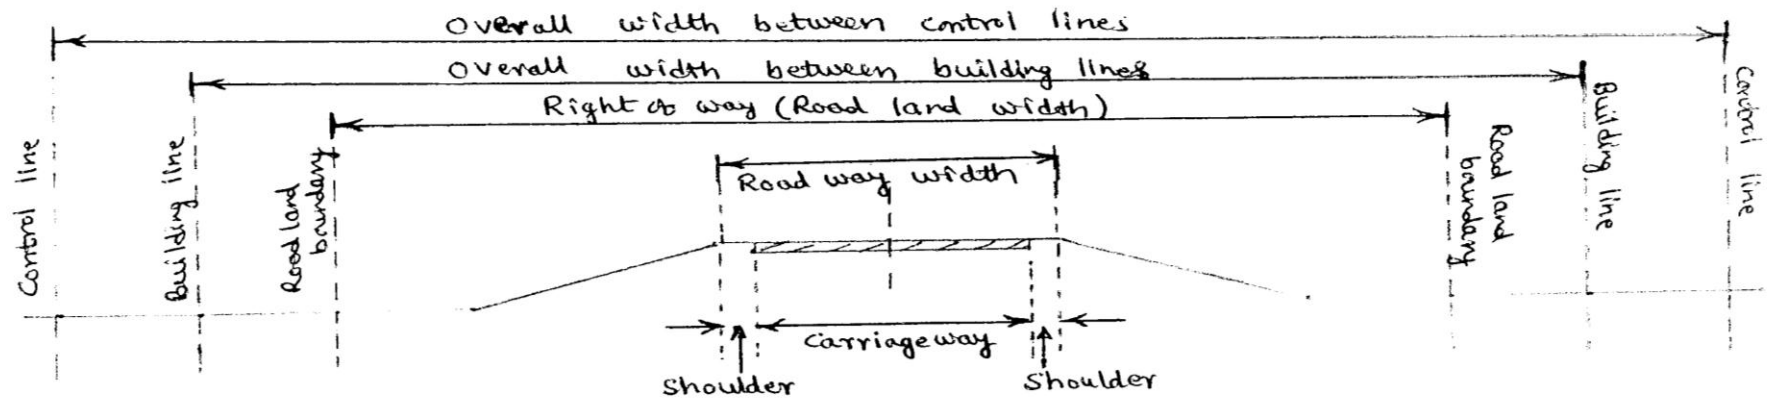 Overall width between control lines
Overall width between building lines
Right of way (Road land width)
Road way width
Control line
Building line
Road land
boundary
Road land
boundary
Building line
Control line
Carriageway
Shoulder
Shoulder